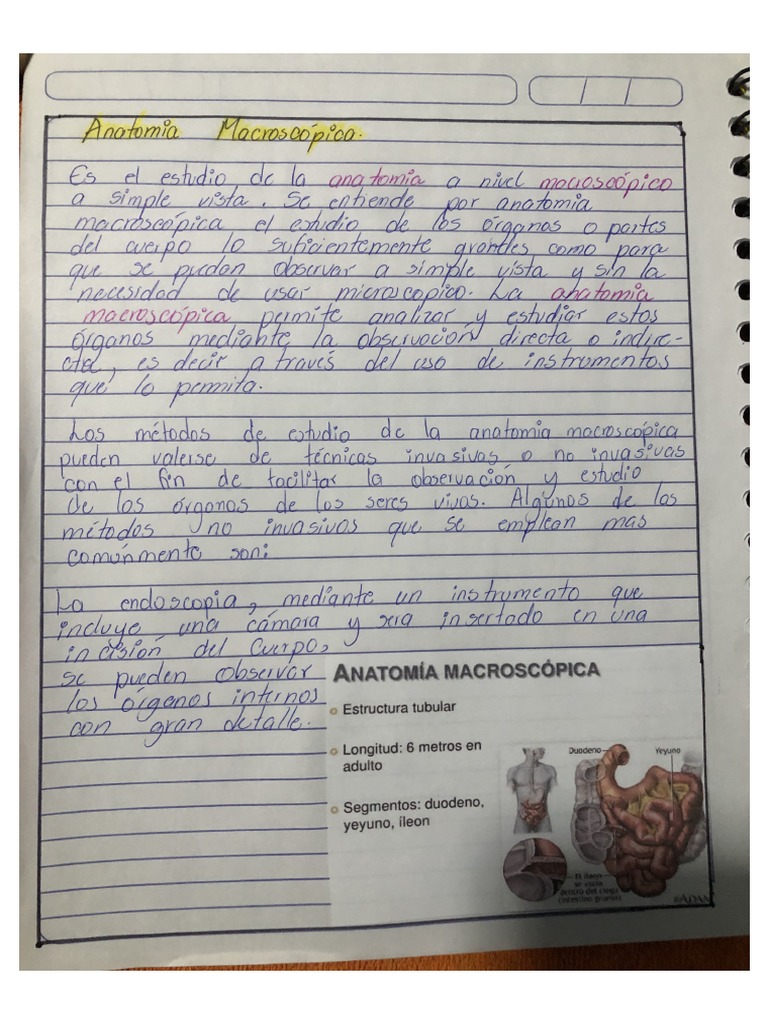 Anatomia Macroscópica.
Es el estudio de la anatomia a nivel macroscópico
a simple vista. Se entiende por anatomia
macroscópica el estudio de los órganos o partes
del cuerpo lo suficientemente grantes como para
que se puedan observar a simple vista y sin la
necesidad de usar microscopico. La anatomia
macroscópica permite analizar y estudiar estos
órganos mediante la observación directa o indire-
cta, es decir a través del uso de instrumentos
que lo permita.
Los métodos de estudio de la anatomia macroscópica
pueden valerse de técnicas invasivas o no invasivas
con el fin de facilitar la observación y estudio
de los órganos de los seres vivos. Algunos de los
métodos y no invasivos que se emplean mas
comúnmente son:
La endoscopia, mediante un instrumento que
incluye una cámara y sera insertado en una
incisión del Cuerpo,
se pueden observar
los órgenos internos
con gran detalle.
ANATOMÍA MACROSCÓPICA
Estructura tubular
Longitud: 6 metros en
adulto
Segmentos: duodeno,
yeyuno, íleon
Duodeno
Yeyuno
El íleon
se vacía
dentro del ciego
(intestino grueso)
©ADAM